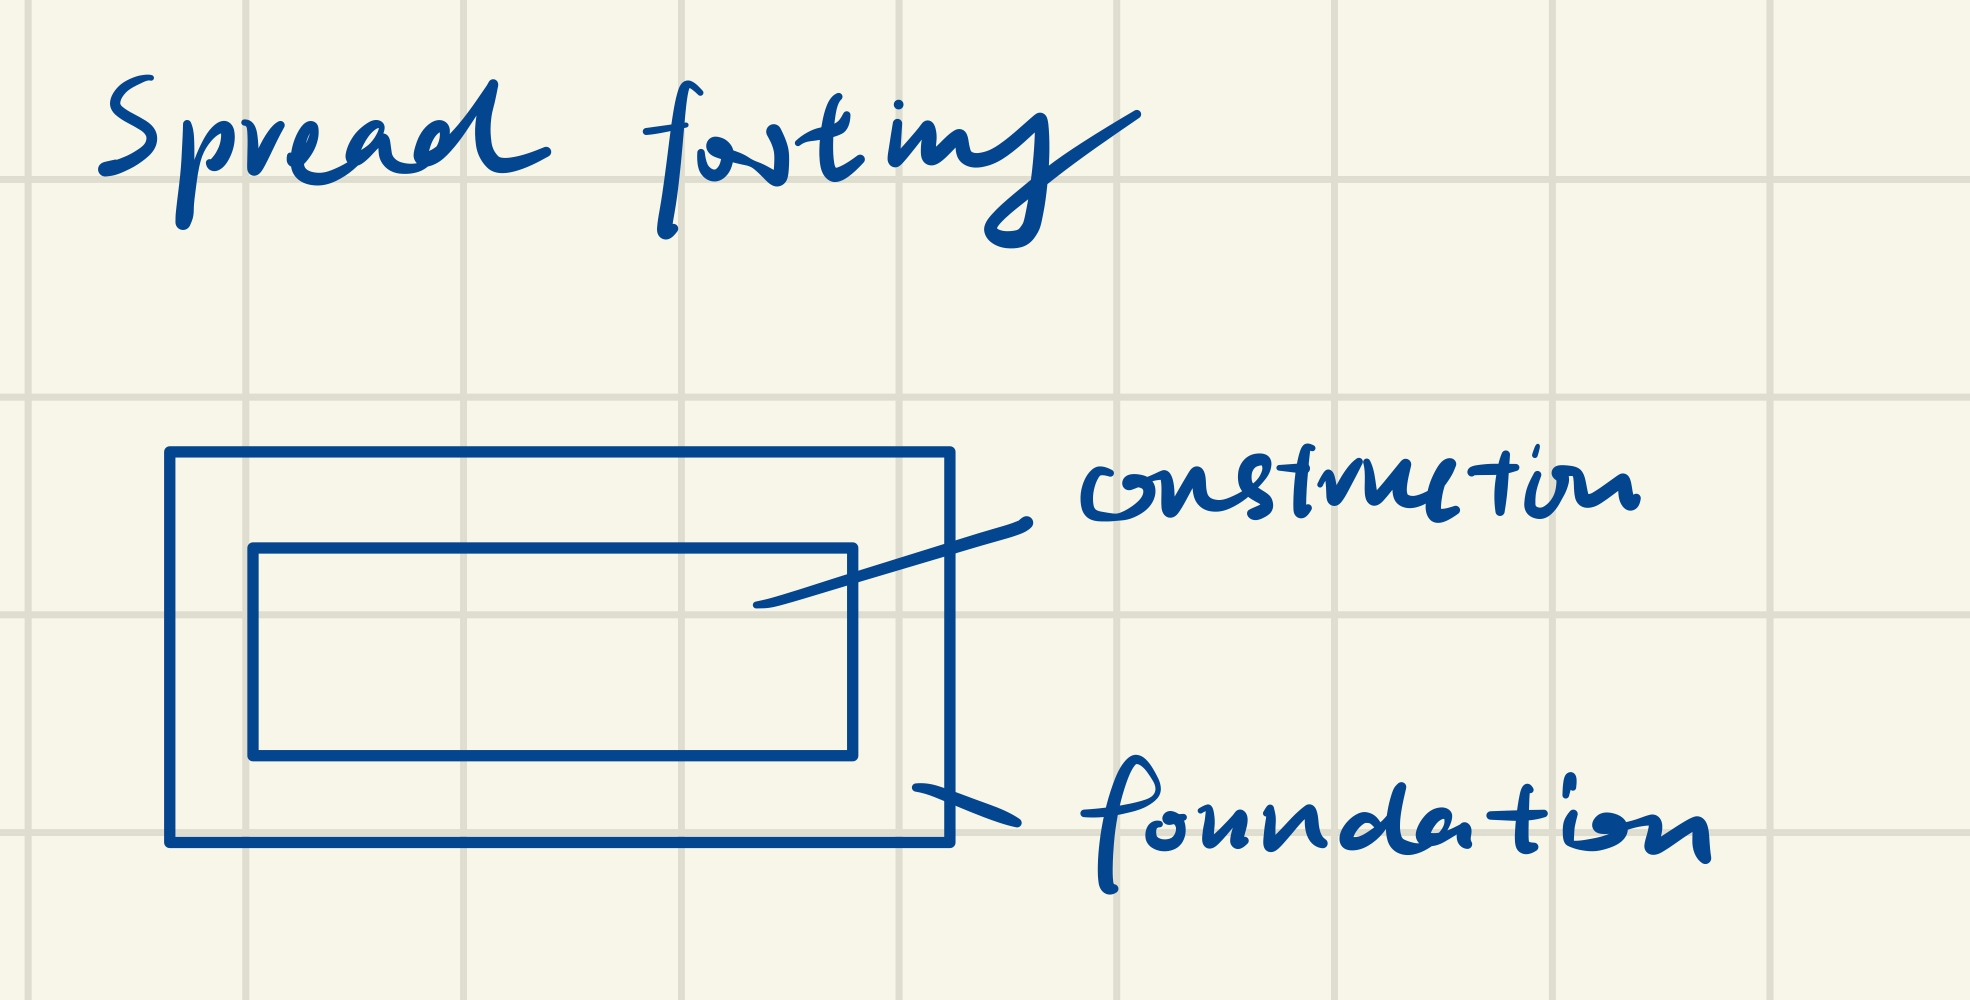 Spread footing
construction
foundation